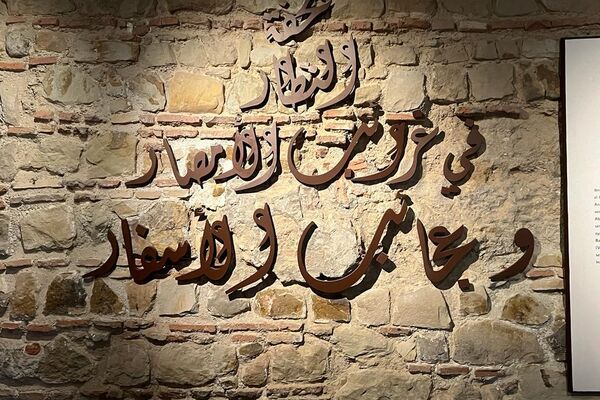 تحفة
النظار
في غرائب الامصار
و عجائب الاسفار